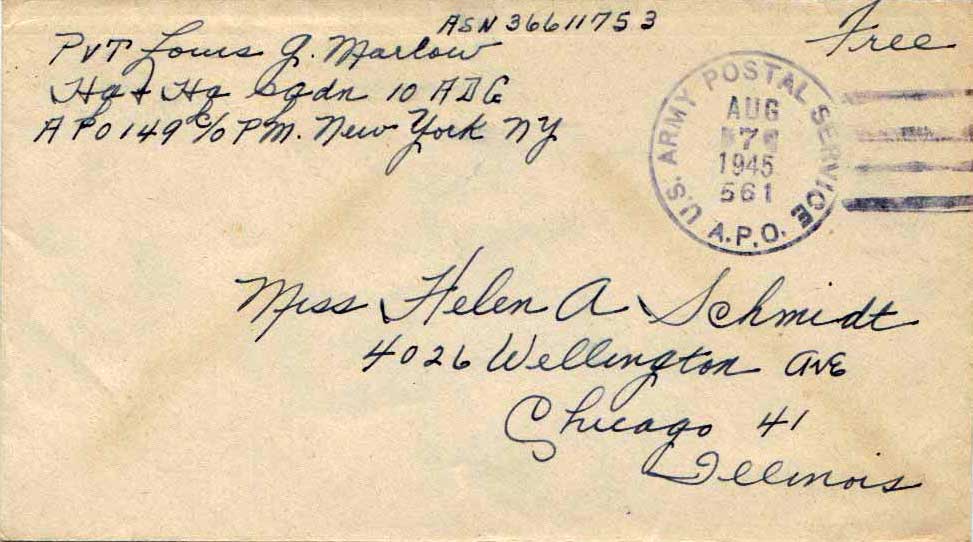 ASN 36611753
Pvt Louis G. Marlow
Hq & Hq Sqdn 10 ADG
APO 149 c/o PM. New York NY
Free
U.S. ARMY POSTAL SERVICE
AUG
7
1945
561
A.P.O.
Miss Helen A Schmidt
4026 Wellington Ave
Chicago 41
Illinois